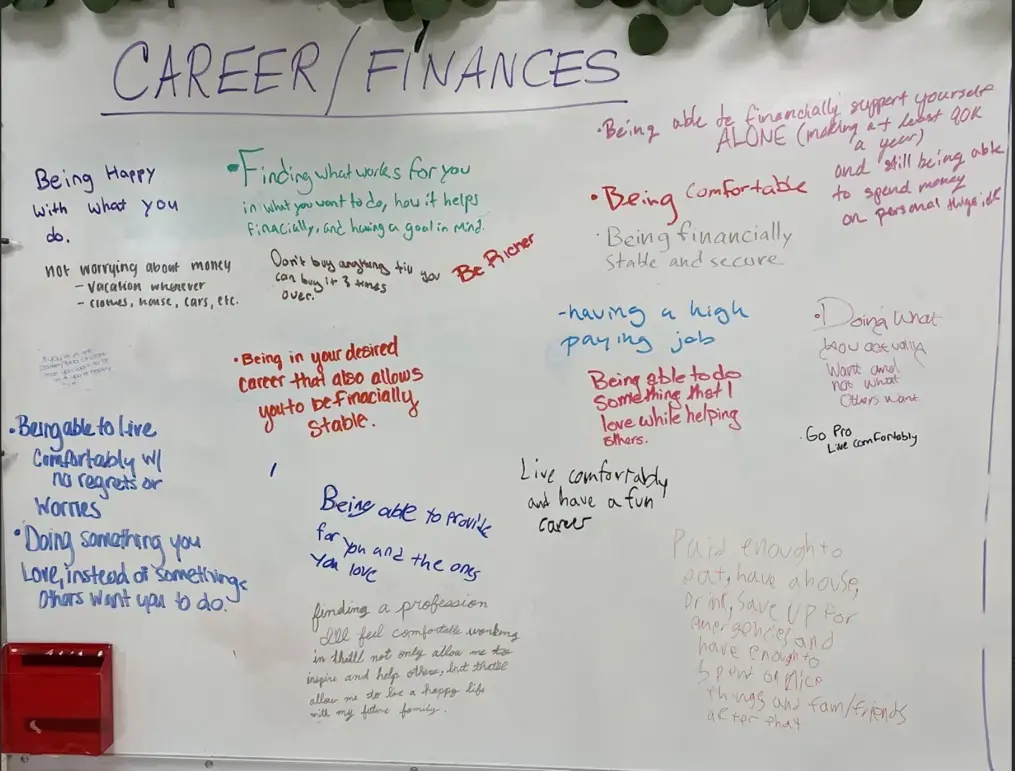 CAREER/FINANCES
Being Happy
with what you
do.
not worrying about money
- vacation whenever
- clothes, house, cars, etc.
• Being able to Live
Comfortably w/
no regrets or
Worries
• Doing something you
Love, instead of something
Others want you to do.
• Finding what works for you
in what you want to do, how it helps
finacially, and having a goal in mind.
Don't buy anything till you
can buy it 3 times
over.
Be Richer
• Being in your desired
career that also allows
you to be finacially
stable.
Being able to provide
for you and the ones
you love
finding a profession
I'll feel comfortable working
in that'll not only allow me to
inspire and help others, but that'll
allow me to live a happy life
with my future family.
• Being able to financially support yourself
ALONE (making at least 90K
a year)
and still being able
to spend money
on personal things, idk
• Being comfortable
• Being financially
stable and secure
- having a high
paying job
Being able to do
something that I
love while helping
others.
Live comfortably
and have a fun
career
• Doing what
you actually
Want and
not what
Others want
• Go Pro
Live comfortably
Paid enough to
eat, have a house,
Drink, save up for
emergencies and
have enough to
spend on nice
things and fam/friends
after that